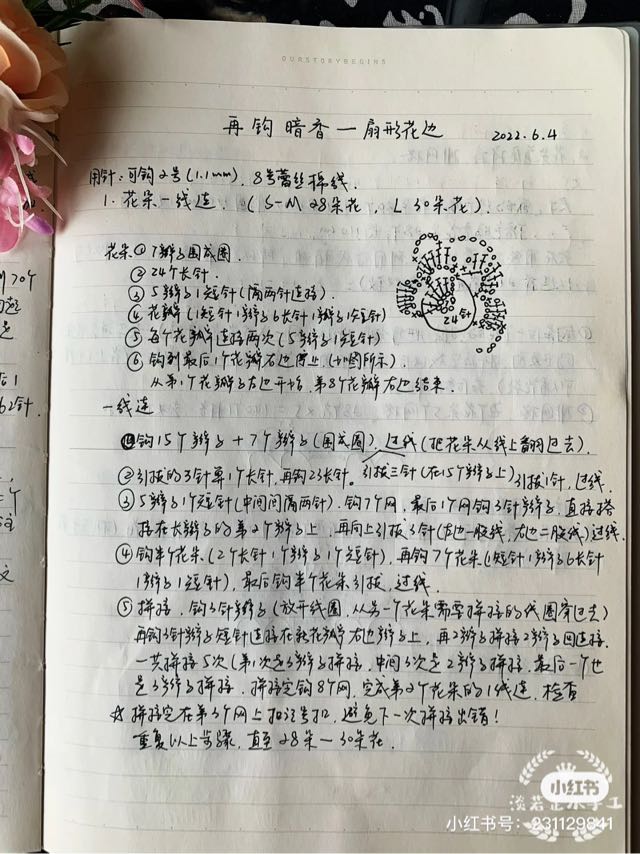 OURSTORYBEGINS
再钩暗香一扇形花边 2022.6.4
用针:可钩2号(1.1mm),8号蕾丝棉线.
1.花朵一线连.(S-M 28朵花,L 30朵花).
花朵①7辫子围成圈.
②24个长针.
③5辫子1短针(隔两针连接).
④花瓣(1短针1辫子6长针1辫子1短针)
⑤每个花瓣连接两次(5辫子1短针)
⑥钩到最后1个花瓣右边停止.(如图所示).
从第1个花瓣左边开始,第8个花瓣右边结束.
24针
一线连
①钩15个辫子+7个辫子(围成圈),过线(把花朵从线上翻过去).
②引拔的3针算1个长针,再钩23长针。引拔三针(在15个辫子上)引拔1针,过线.
③5辫子1个短针(中间间隔两针).钩7个网,最后1个网钩3针辫子,直接搭
接在长辫子的第2个辫子上,再向上引拔3针(左边一股线,右边二股线)过线.
④钩半个花朵(2个长针1个辫子1个短针),再钩7个花朵(1短针1辫子6长针
1辫子1短针),最后钩半个花朵引拔,过线.
⑤拼接.钩3针辫子(放开线圈,从另一个花朵需要拼接的线圈穿过去)
再钩3针辫子短针连接在新花瓣右边辫子上,再2辫子拼接2辫子回连接.
一共拼接5次(第1次是3辫子拼接,中间3次是2辫子拼接,最后一个也
是3辫子拼接.拼接完钩8个网,完成第2个花朵的1线连,检查
☆拼接完在第3个网上扣记号扣,避免下一次拼接出错!
重复以上步骤,直至28朵—30朵花.
m)70个
62针.
个
文
小红书
淡若芷水手工
小红书号:231129841